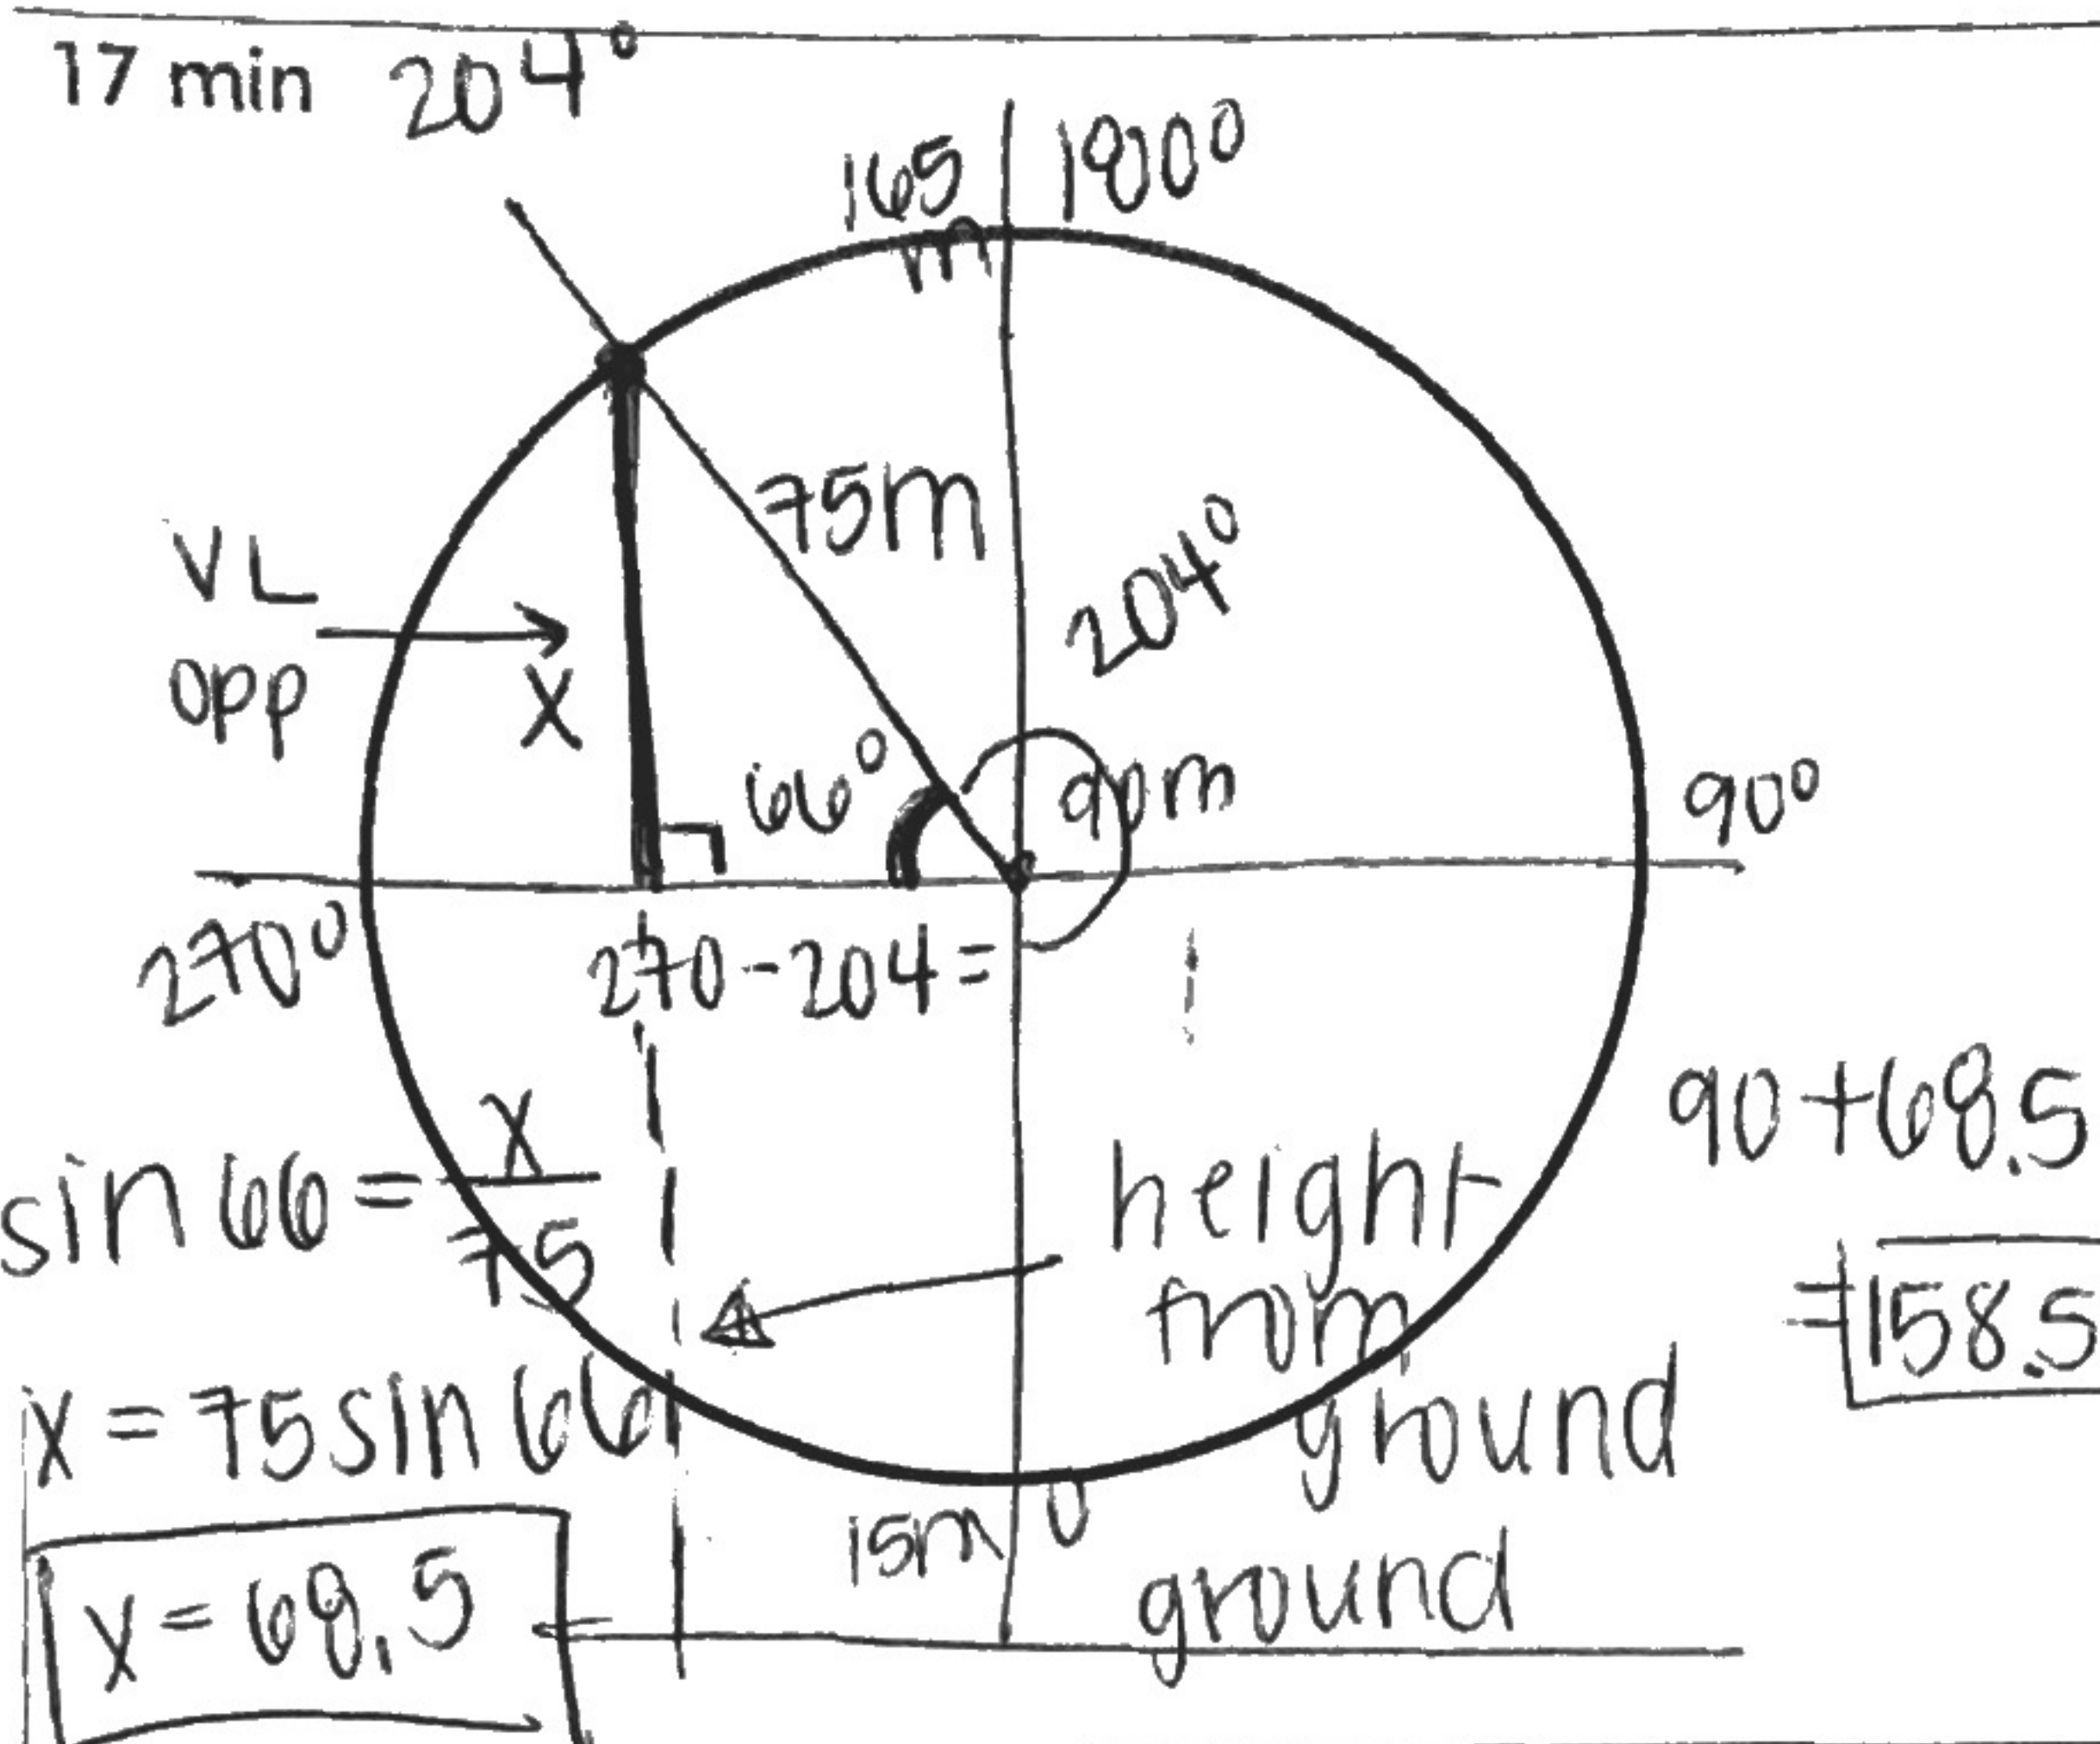 17 min 204°
165 m
180°
75m
204°
VL
opp
x
66°
90m
90°
270°
270-204=
90+68.5
=158.5
sin66=x/75
height
from
ground
x=75sin66
15m
0
x=68.5
ground